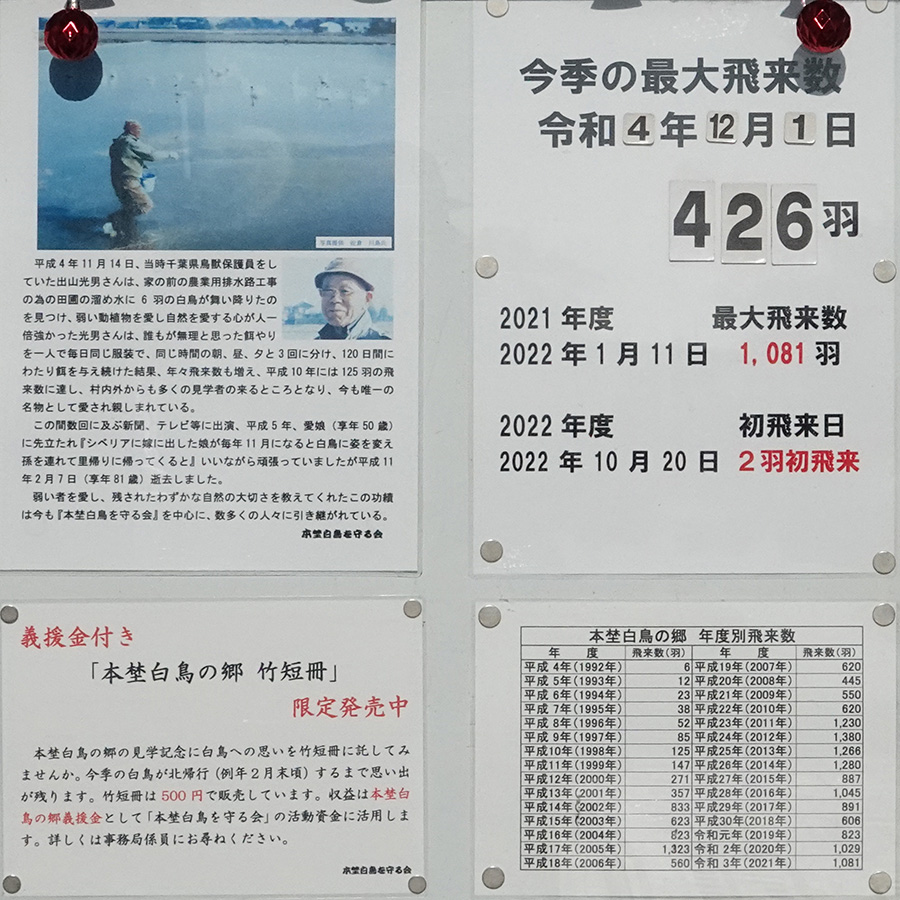 写真提供 佐倉 川島氏
平成4年11月14日、当時千葉県鳥獣保護員をし
ていた出山光男さんは、家の前の農業用排水路工事
の為の田圃の溜め水に6羽の白鳥が舞い降りたの
を見つけ、弱い動植物を愛し自然を愛する心が人一
倍強かった光男さんは、誰もが無理と思った餌やり
を一人で毎日同じ服装で、同じ時間の朝、昼、夕と3回に分け、120日間に
わたり餌を与え続けた結果、年々飛来数も増え、平成10年には125羽の飛
来数に達し、村内外からも多くの見学者の来るところとなり、今も唯一の
名物として愛され親しまれている。
この間数回に及ぶ新聞、テレビ等に出演、平成5年、愛娘(享年50歳)
に先立たれ『シベリアに嫁に出した娘が毎年11月になると白鳥に姿を変え
孫を連れて里帰りに帰ってくると』いいながら頑張っていましたが平成11
年2月7日(享年81歳)逝去しました。
弱い者を愛し、残されたわずかな自然の大切さを教えてくれたこの功績
は今も『本埜白鳥を守る会』を中心に、数多くの人々に引き継がれている。
本埜白鳥を守る会
今季の最大飛来数
令和4年12月1日
426羽
2021年度 最大飛来数
2022年1月11日 1,081羽
2022年度 初飛来日
2022年10月20日 2羽初飛来
義援金付き
「本埜白鳥の郷 竹短冊」
限定発売中
本埜白鳥の郷の見学記念に白鳥への思いを竹短冊に託してみ
ませんか。今季の白鳥が北帰行(例年2月末頃)するまで思い出
が残ります。竹短冊は500円で販売しています。収益は本埜白
鳥の郷義援金として「本埜白鳥を守る会」の活動資金に活用しま
す。詳しくは事務局係員にお尋ねください。
本埜白鳥を守る会
本埜白鳥の郷 年度別飛来数
年 度 飛来数(羽) 年 度 飛来数(羽)
平成4年(1992年) 6 平成19年(2007年) 620
平成5年(1993年) 12 平成20年(2008年) 445
平成6年(1994年) 23 平成21年(2009年) 550
平成7年(1995年) 38 平成22年(2010年) 620
平成8年(1996年) 52 平成23年(2011年) 1,230
平成9年(1997年) 85 平成24年(2012年) 1,380
平成10年(1998年) 125 平成25年(2013年) 1,266
平成11年(1999年) 147 平成26年(2014年) 1,280
平成12年(2000年) 271 平成27年(2015年) 887
平成13年(2001年) 357 平成28年(2016年) 1,045
平成14年(2002年) 833 平成29年(2017年) 891
平成15年(2003年) 623 平成30年(2018年) 606
平成16年(2004年) 823 令和元年(2019年) 823
平成17年(2005年) 1,323 令和2年(2020年) 1,029
平成18年(2006年) 560 令和3年(2021年) 1,081